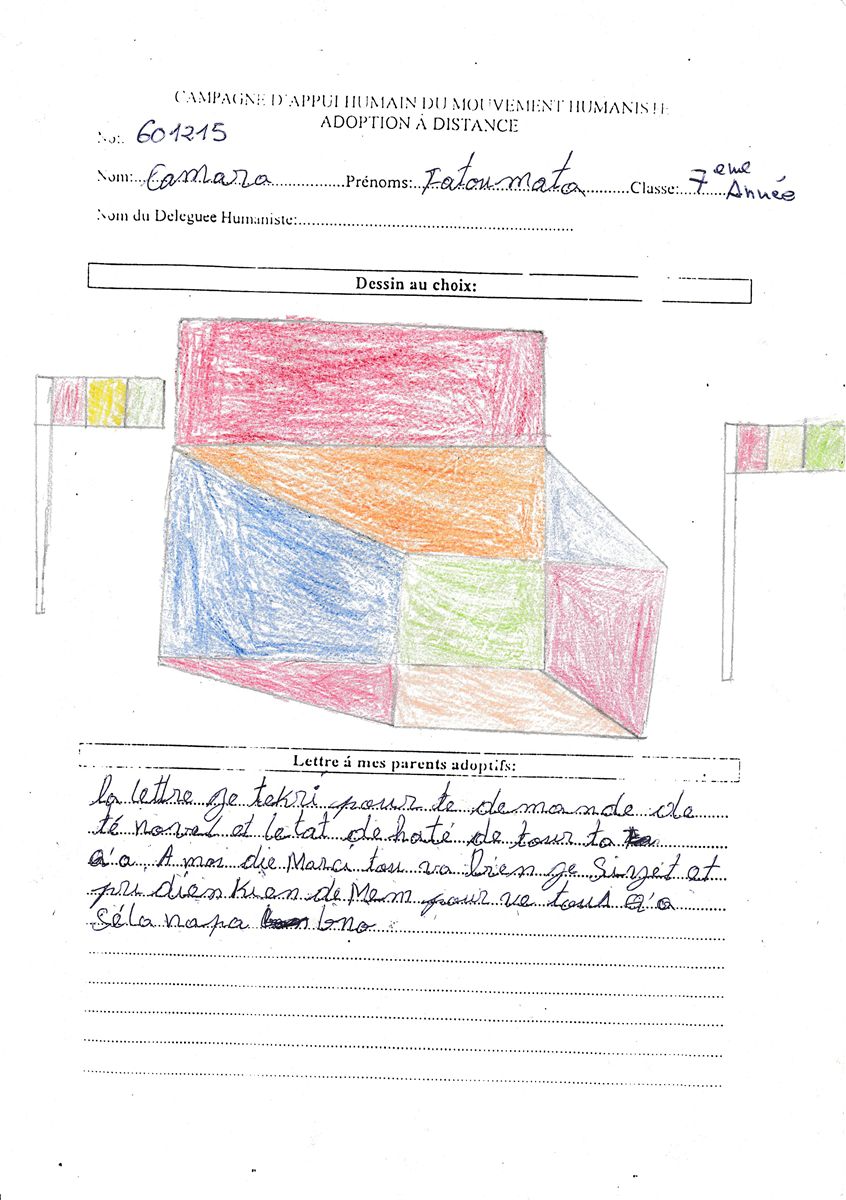 CAMPAGNE D'APPUI HUMAIN DU MOUVEMENT HUMANISTE
ADOPTION À DISTANCE
No: 601215
Nom: Camara Prénoms: Fatoumata Classe: 7eme Année
Nom du Deleguee Humaniste:
Dessin au choix:
Lettre á mes parents adoptifs:
la lettre ge tekri pour te demande de
té novel et letat de haté de tour ta
A moi die Marci tou va bien ge et
pri dien kien de Mem pour ve tous
séla napa bno